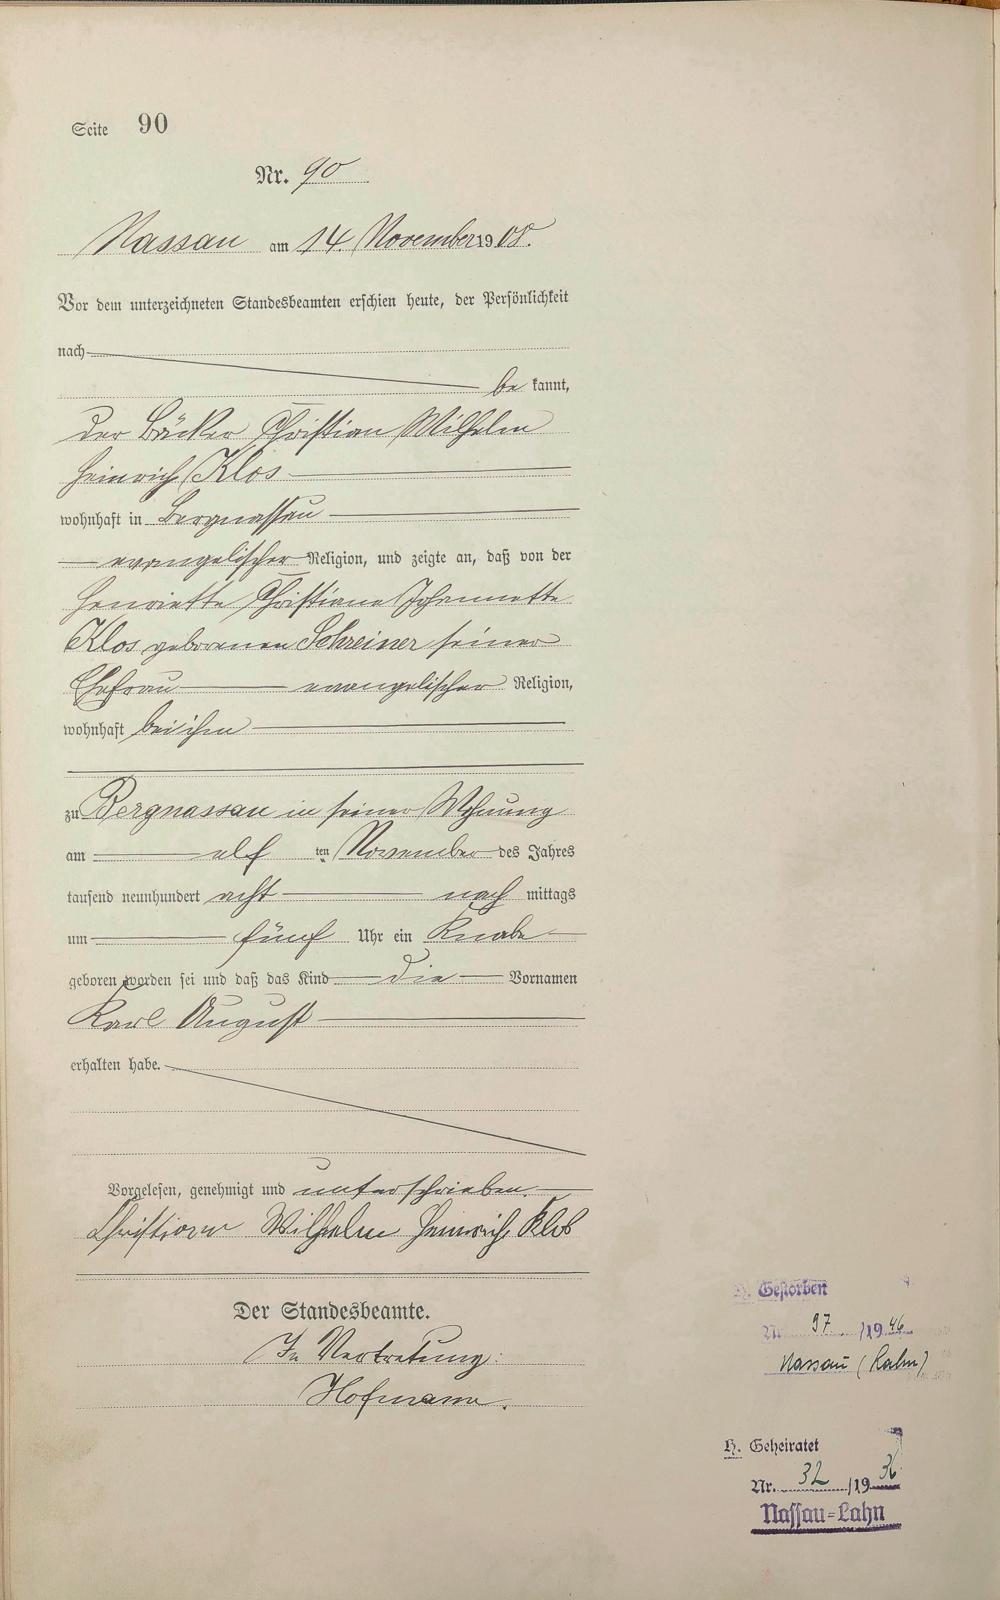 Seite 90
Nr. 90
Nassau am 14. November 1908.
Vor dem unterzeichneten Standesbeamten erschien heute, der Persönlichkeit
nach
be kannt,
der Bäcker Christian Wilhelm
Heinrich Klos
wohnhaft in Bergnassau
evangelischer Religion, und zeigte an, daß von der
Henriette Christiane Johannette
Klos geborenen Schreiner seiner
Ehefrau evangelischer Religion,
wohnhaft bei ihm
zu Bergnassau in seiner Wohnung
am elf ten November des Jahres
tausend neunhundert acht nach mittags
um fünf Uhr ein Knabe
geboren worden sei und daß das Kind die Vornamen
Karl August
erhalten habe.
Vorgelesen, genehmigt und unterschrieben.
Christian Wilhelm Heinrich Klos
Der Standesbeamte.
In Vertretung:
Hofmann.
H. Gestorben
Nr. 97 /1946
Nassau (Lahn)
H. Geheiratet
Nr. 32 /1936
Nassau-Lahn